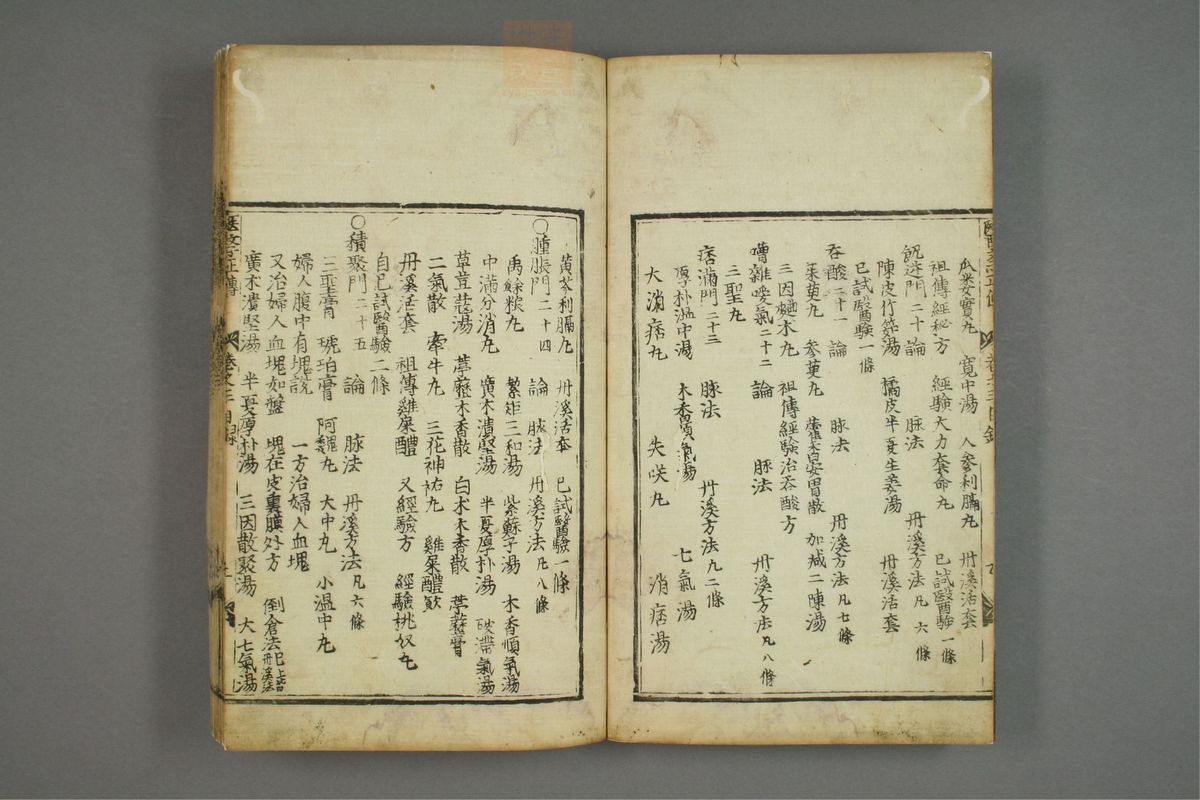 瓜蔞實丸 寬中湯 人參利膈丸 丹溪活套
祖傳經秘方 經驗大力奪命丸 已試醫驗一條
呃逆門二十 論 脉法 丹溪方法凡六條
陳皮竹茹湯 橘皮半夏生姜湯 丹溪活套
已試醫驗一條
吞酸二十一 論 脉法 丹溪方法凡七條
茱萸丸 參萸丸 藿香安胃散 加减二陳湯
三因麯朮丸 祖傳經驗治吞酸方
嘈雜噯氣二十二 論 脉法 丹溪方法凡八條
三聖丸
痞滿門二十三 脉法 丹溪方法九二條
厚朴溫中湯 木香順氣湯 七氣湯
大消痞丸 失咲丸 消痞湯
黃芩利膈丸 丹溪活套 已試醫驗一條
○腫脹門二十四 論 脉法 丹溪方法凡八條
禹餘粮丸 紫蘇子湯 木香順氣湯
中滿分消丸 廣朮潰堅湯 半夏厚朴湯 破滯氣湯
草豆蔻湯 葶藶木香散 白朮木香散 葶藶膏
二氣散 牽牛丸 三花神祐丸 雞屎醴飲
丹溪活套 祖傳雞屎醴 又經驗方 經驗桃奴丸
自已試醫驗二條
○積聚門二十五 論 脉法 丹溪方法凡六條
三聖膏 琥珀膏 阿魏丸 大中丸 小溫中丸
婦人腹中有塊說 一方治婦人血塊
又治婦人血塊如盤 塊在皮裏膜外方 倒倉法
廣朮潰堅湯 半夏厚朴湯 三因散聚湯 大七氣湯